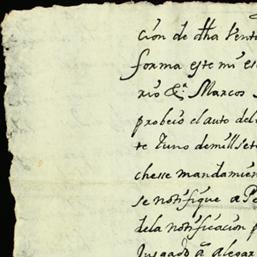 cion de dha Vent
forma este mi es
rio &ª Marcos
probeio el auto del
te Uno de mill set
chesse mandamien
se notifique a Pe
dela notificacion p
Jusgado a alegar